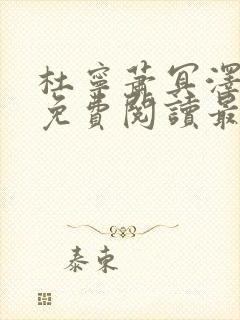 杜寧蕭冥澤
免費閱讀最
泰東